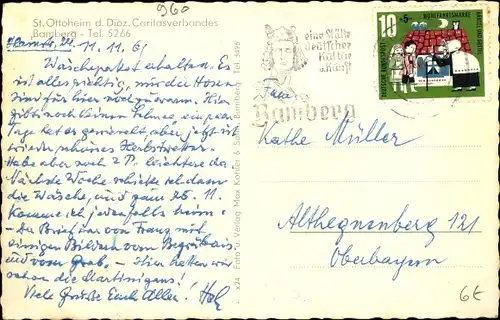 960
St. Ottoheim d. Diöz. Caritasverbandes
Bamberg - Tel. 5266
11. 11. 61
Wäschepaket erhalten. Es
ist alles richtig, nur die Hosen
sind für hier noch zu warm. Hier
gibt's noch keinen Schnee, ein paar
Tage hat es geregnet, aber jetzt ist
wieder schönes Herbstwetter.
Habe aber noch 2 P. leichtere da.
Nächste Woche schicke ich dann
die Wäsche, und zum 25. 11.
komme ich jedenfalls heim.
- Der Brief war von Franz mit
einigen Bildern vom Begräbnis
und vom Grab. - Hier hatten wir
schon die Martinigans!
Viele Grüße Euch Allen!
Foto u. Verlag Max Kohler & Sohn, Bamberg, Tel. 3495
eine Stätte
deutscher
Kultur
u. Kunst
Bamberg
10 +5
WOHLFAHRTSMARKE
DEUTSCHE BUNDESPOST
HÄNSEL UND GRETEL
Frau
Käthe Müller
Althegnenberg 121
Oberbayern
6€